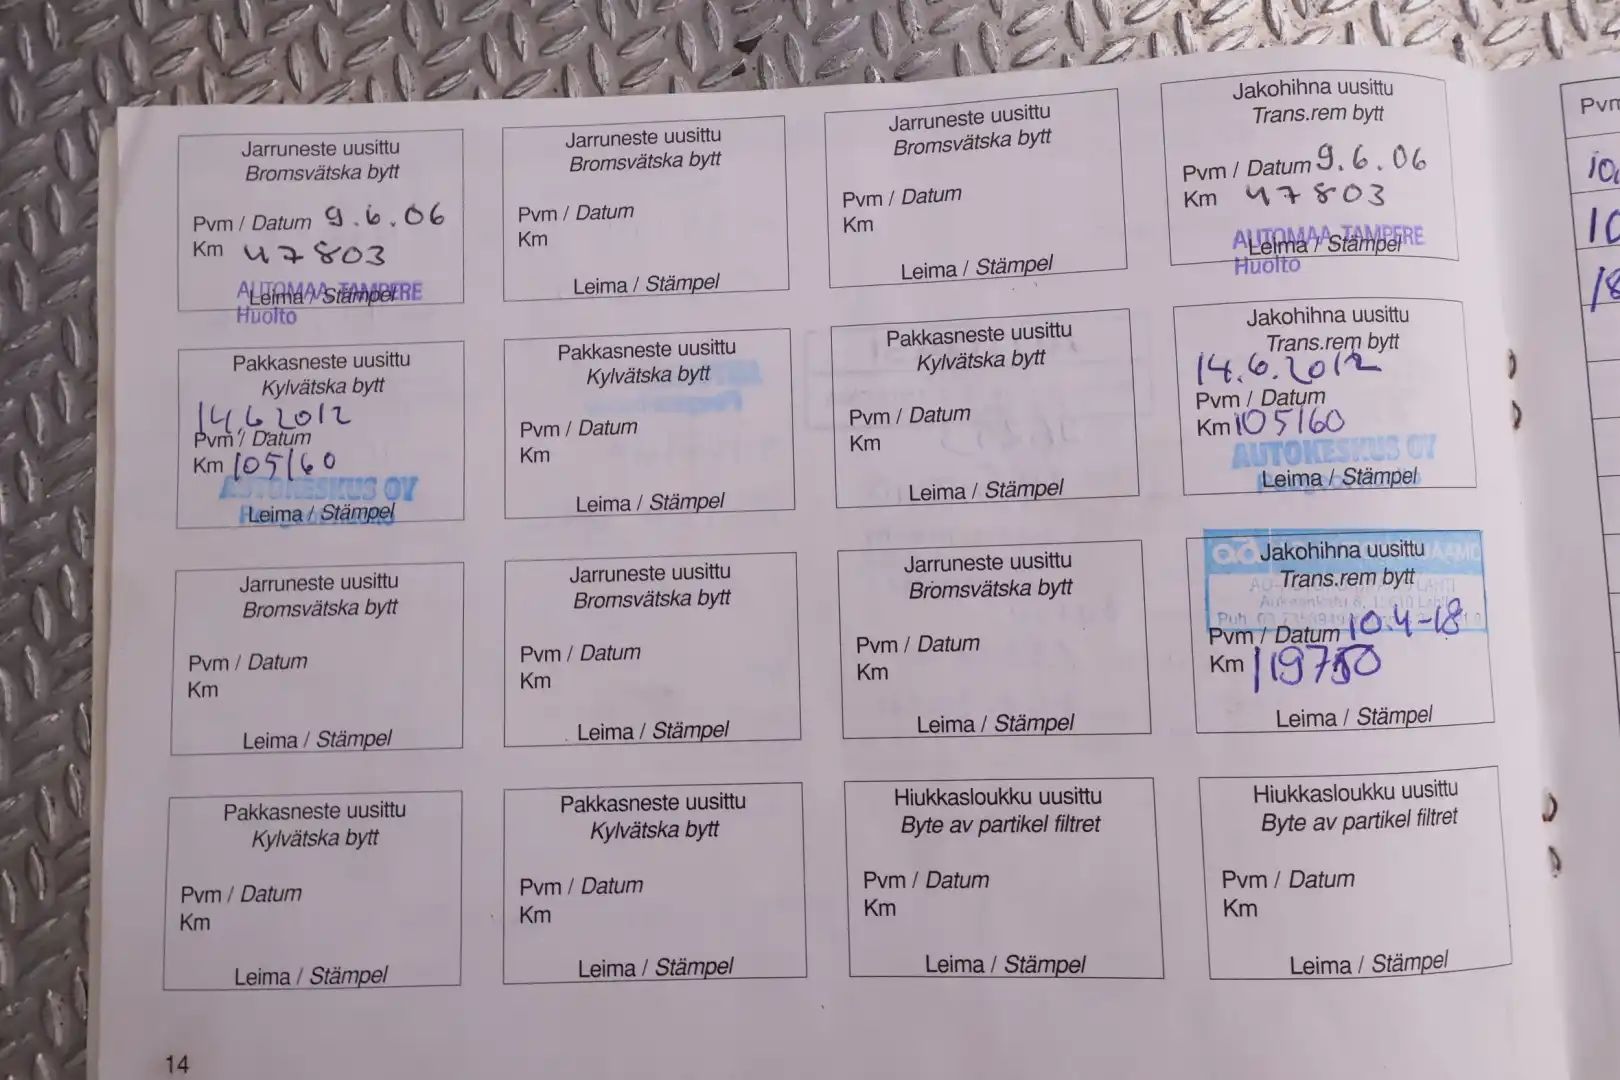 Jarruneste uusittu
Bromsvätska bytt
Pvm / Datum 9.6.06
Km 47803
AUTOMAA TAMPERE
Leima / Stämpel
Huolto
Jarruneste uusittu
Bromsvätska bytt
Pvm / Datum
Km
Leima / Stämpel
Jarruneste uusittu
Bromsvätska bytt
Pvm / Datum
Km
Leima / Stämpel
Jakohihna uusittu
Trans.rem bytt
Pvm / Datum 9.6.06
Km 47803
AUTOMAA TAMPERE
Leima / Stämpel
Huolto
Pakkasneste uusittu
Kylvätska bytt
14.6.2012
Pvm / Datum
Km 105160
AUTOKESKUS OY
Leima / Stämpel
Pakkasneste uusittu
Kylvätska bytt
Pvm / Datum
Km
Leima / Stämpel
Pakkasneste uusittu
Kylvätska bytt
Pvm / Datum
Km
Leima / Stämpel
Jakohihna uusittu
Trans.rem bytt
14.6.2012
Pvm / Datum
Km 105160
AUTOKESKUS OY
Leima / Stämpel
Jarruneste uusittu
Bromsvätska bytt
Pvm / Datum
Km
Leima / Stämpel
Jarruneste uusittu
Bromsvätska bytt
Pvm / Datum
Km
Leima / Stämpel
Jarruneste uusittu
Bromsvätska bytt
Pvm / Datum
Km
Leima / Stämpel
ad
Jakohihna uusittu
Trans.rem bytt
Pvm / Datum 10.4-18
Km 119750
Leima / Stämpel
Pakkasneste uusittu
Kylvätska bytt
Pvm / Datum
Km
Leima / Stämpel
Pakkasneste uusittu
Kylvätska bytt
Pvm / Datum
Km
Leima / Stämpel
Hiukkasloukku uusittu
Byte av partikel filtret
Pvm / Datum
Km
Leima / Stämpel
Hiukkasloukku uusittu
Byte av partikel filtret
Pvm / Datum
Km
Leima / Stämpel
14